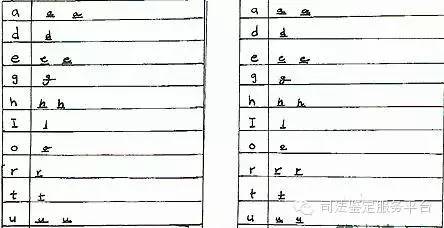 a a a
d d
e e e
g g
h h h
I l
o o
r r
t t
u u u
a a a
d d
e e e e
g g
h h h
I l
o o
r r r
t t
u u u
司法鉴定服务平台